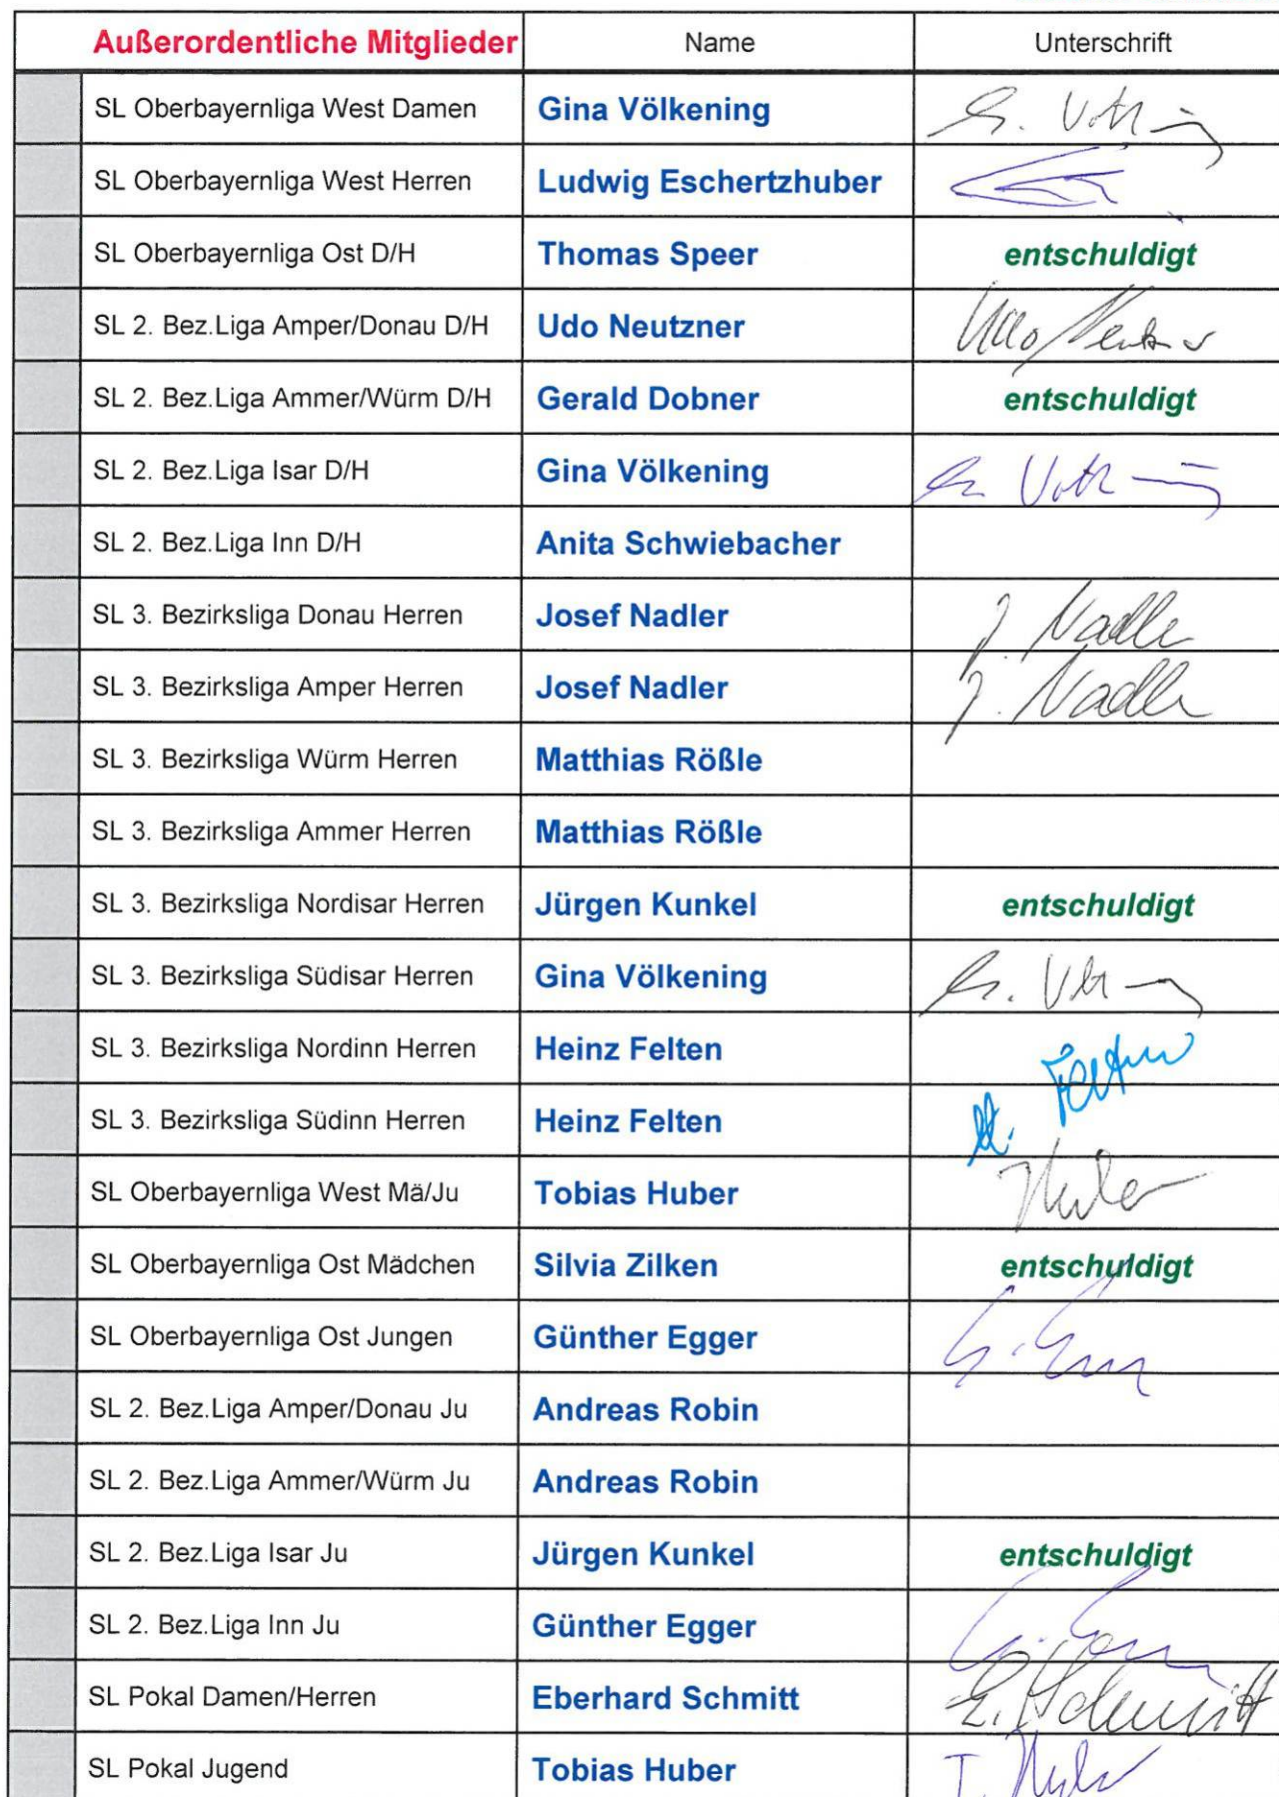 Außerordentliche Mitglieder Name Unterschrift
SL Oberbayernliga West Damen Gina Völkening G. Völkening
SL Oberbayernliga West Herren Ludwig Eschertzhuber
SL Oberbayernliga Ost D/H Thomas Speer entschuldigt
SL 2. Bez.Liga Amper/Donau D/H Udo Neutzner Udo Neutzner
SL 2. Bez.Liga Ammer/Würm D/H Gerald Dobner entschuldigt
SL 2. Bez.Liga Isar D/H Gina Völkening G. Völkening
SL 2. Bez.Liga Inn D/H Anita Schwiebacher
SL 3. Bezirksliga Donau Herren Josef Nadler J. Nadler
SL 3. Bezirksliga Amper Herren Josef Nadler J. Nadler
SL 3. Bezirksliga Würm Herren Matthias Rößle
SL 3. Bezirksliga Ammer Herren Matthias Rößle
SL 3. Bezirksliga Nordisar Herren Jürgen Kunkel entschuldigt
SL 3. Bezirksliga Südisar Herren Gina Völkening G. Völkening
SL 3. Bezirksliga Nordinn Herren Heinz Felten
SL 3. Bezirksliga Südinn Herren Heinz Felten H. Felten
SL Oberbayernliga West Mä/Ju Tobias Huber Huber
SL Oberbayernliga Ost Mädchen Silvia Zilken entschuldigt
SL Oberbayernliga Ost Jungen Günther Egger
SL 2. Bez.Liga Amper/Donau Ju Andreas Robin
SL 2. Bez.Liga Ammer/Würm Ju Andreas Robin
SL 2. Bez.Liga Isar Ju Jürgen Kunkel entschuldigt
SL 2. Bez.Liga Inn Ju Günther Egger
SL Pokal Damen/Herren Eberhard Schmitt E. Schmitt
SL Pokal Jugend Tobias Huber T. Huber